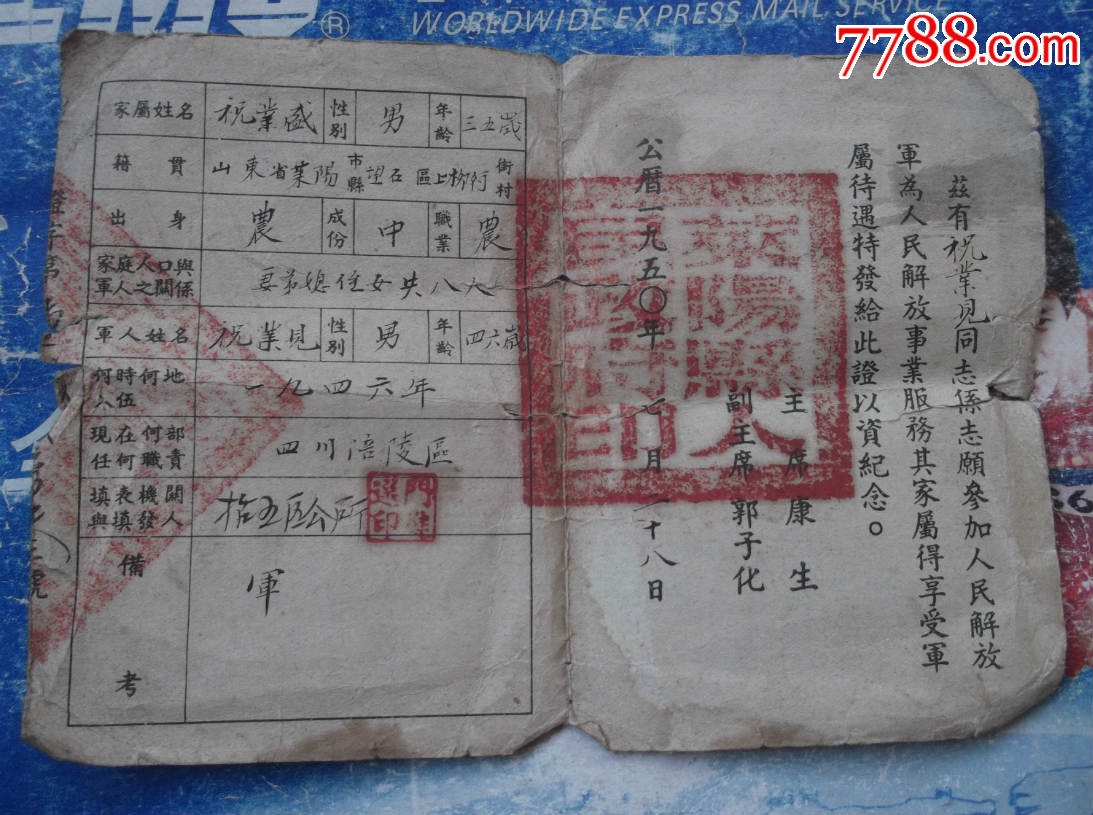 WORLDWIDE EXPRESS MAIL SERVICE
7788.com
茲有祝業見同志係志願參加人民解放
軍為人民解放事業服務其家屬得享受軍
屬待遇特發給此證以資紀念。
主席康生
副主席郭子化
公曆一九五〇年七月二十八日
萊陽縣人
印
家屬姓名 祝業盛 性別 男 年齡 三五歲
籍貫 山東省萊陽市縣望石區上 街村
出身 農 成份 中 職業 農
家庭人口與軍人之關係 妻弟媳侄女共八人
軍人姓名 祝業見 性別 男 年齡 四六歲
何時何地入伍 一九四六年
現在何部任何職責 四川涪陵區
填表機關與填發人 拾五區公所
備考 軍
證字第
號